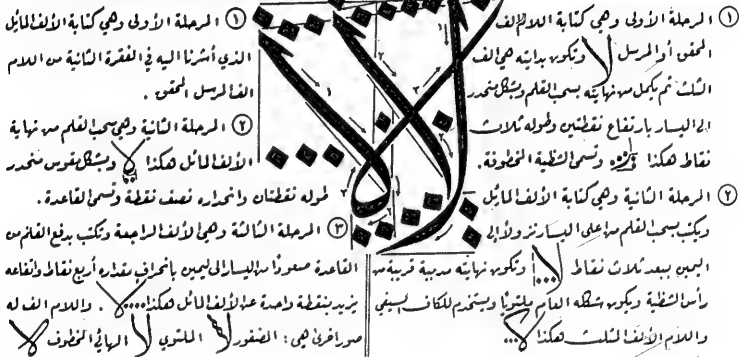 ① المرحلة الأولى وهي كتابة اللام الف
المحقق أو المرسل وتكون بدايته هي الف
الثلث ثم يكمل من نهايته بسحب القلم وبشكل منحدر
الى اليسار بارتفاع نقطتين وطوله ثلاث
نقاط هكذا وتسمى الشظية المخطوفة.
② المرحلة الثانية وهي كتابة الألف المائل
ويكتب بسحب القلم من على اليسار نزولاً الى
اليمين ببعد ثلاث نقاط وتكون نهايته مدببة قريبة من
رأس الشظية ويكون شكله العام ملتوياً ويستخدم للكاف السيفي
واللام الألف المثلث هكذا
① المرحلة الأولى وهي كتابة الألف المائل
الذي أشرنا اليه في الفقرة الثانية من اللام
الف المرسل المحقق.
② المرحلة الثانية وهي سحب القلم من نهاية
الألف المائل هكذا وبشكل مقوس منحدر
طوله نقطتان وانحداره نصف نقطة وتسمى القاعدة.
③ المرحلة الثالثة وهي الألف الراجعة وتكتب بدفع القلم من
القاعدة صعوداً من اليسار الى اليمين بانحراف مقداره أربع نقاط وارتفاعه
يزيد بنقطة واحدة عن الألف المائل هكذا. واللام الف له
صور اخرى هي: المضفور الملتوي الهائي المخطوف